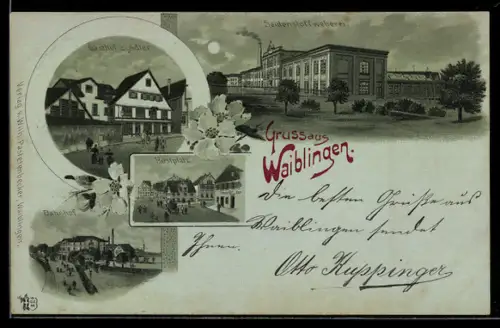 Gasthof z. Adler
Seidenstoffweberei
Gruss aus
Waiblingen.
Marktplatz
Bahnhof
Die besten Grüße aus
Waiblingen sendet
Ihnen
Otto Kuppinger